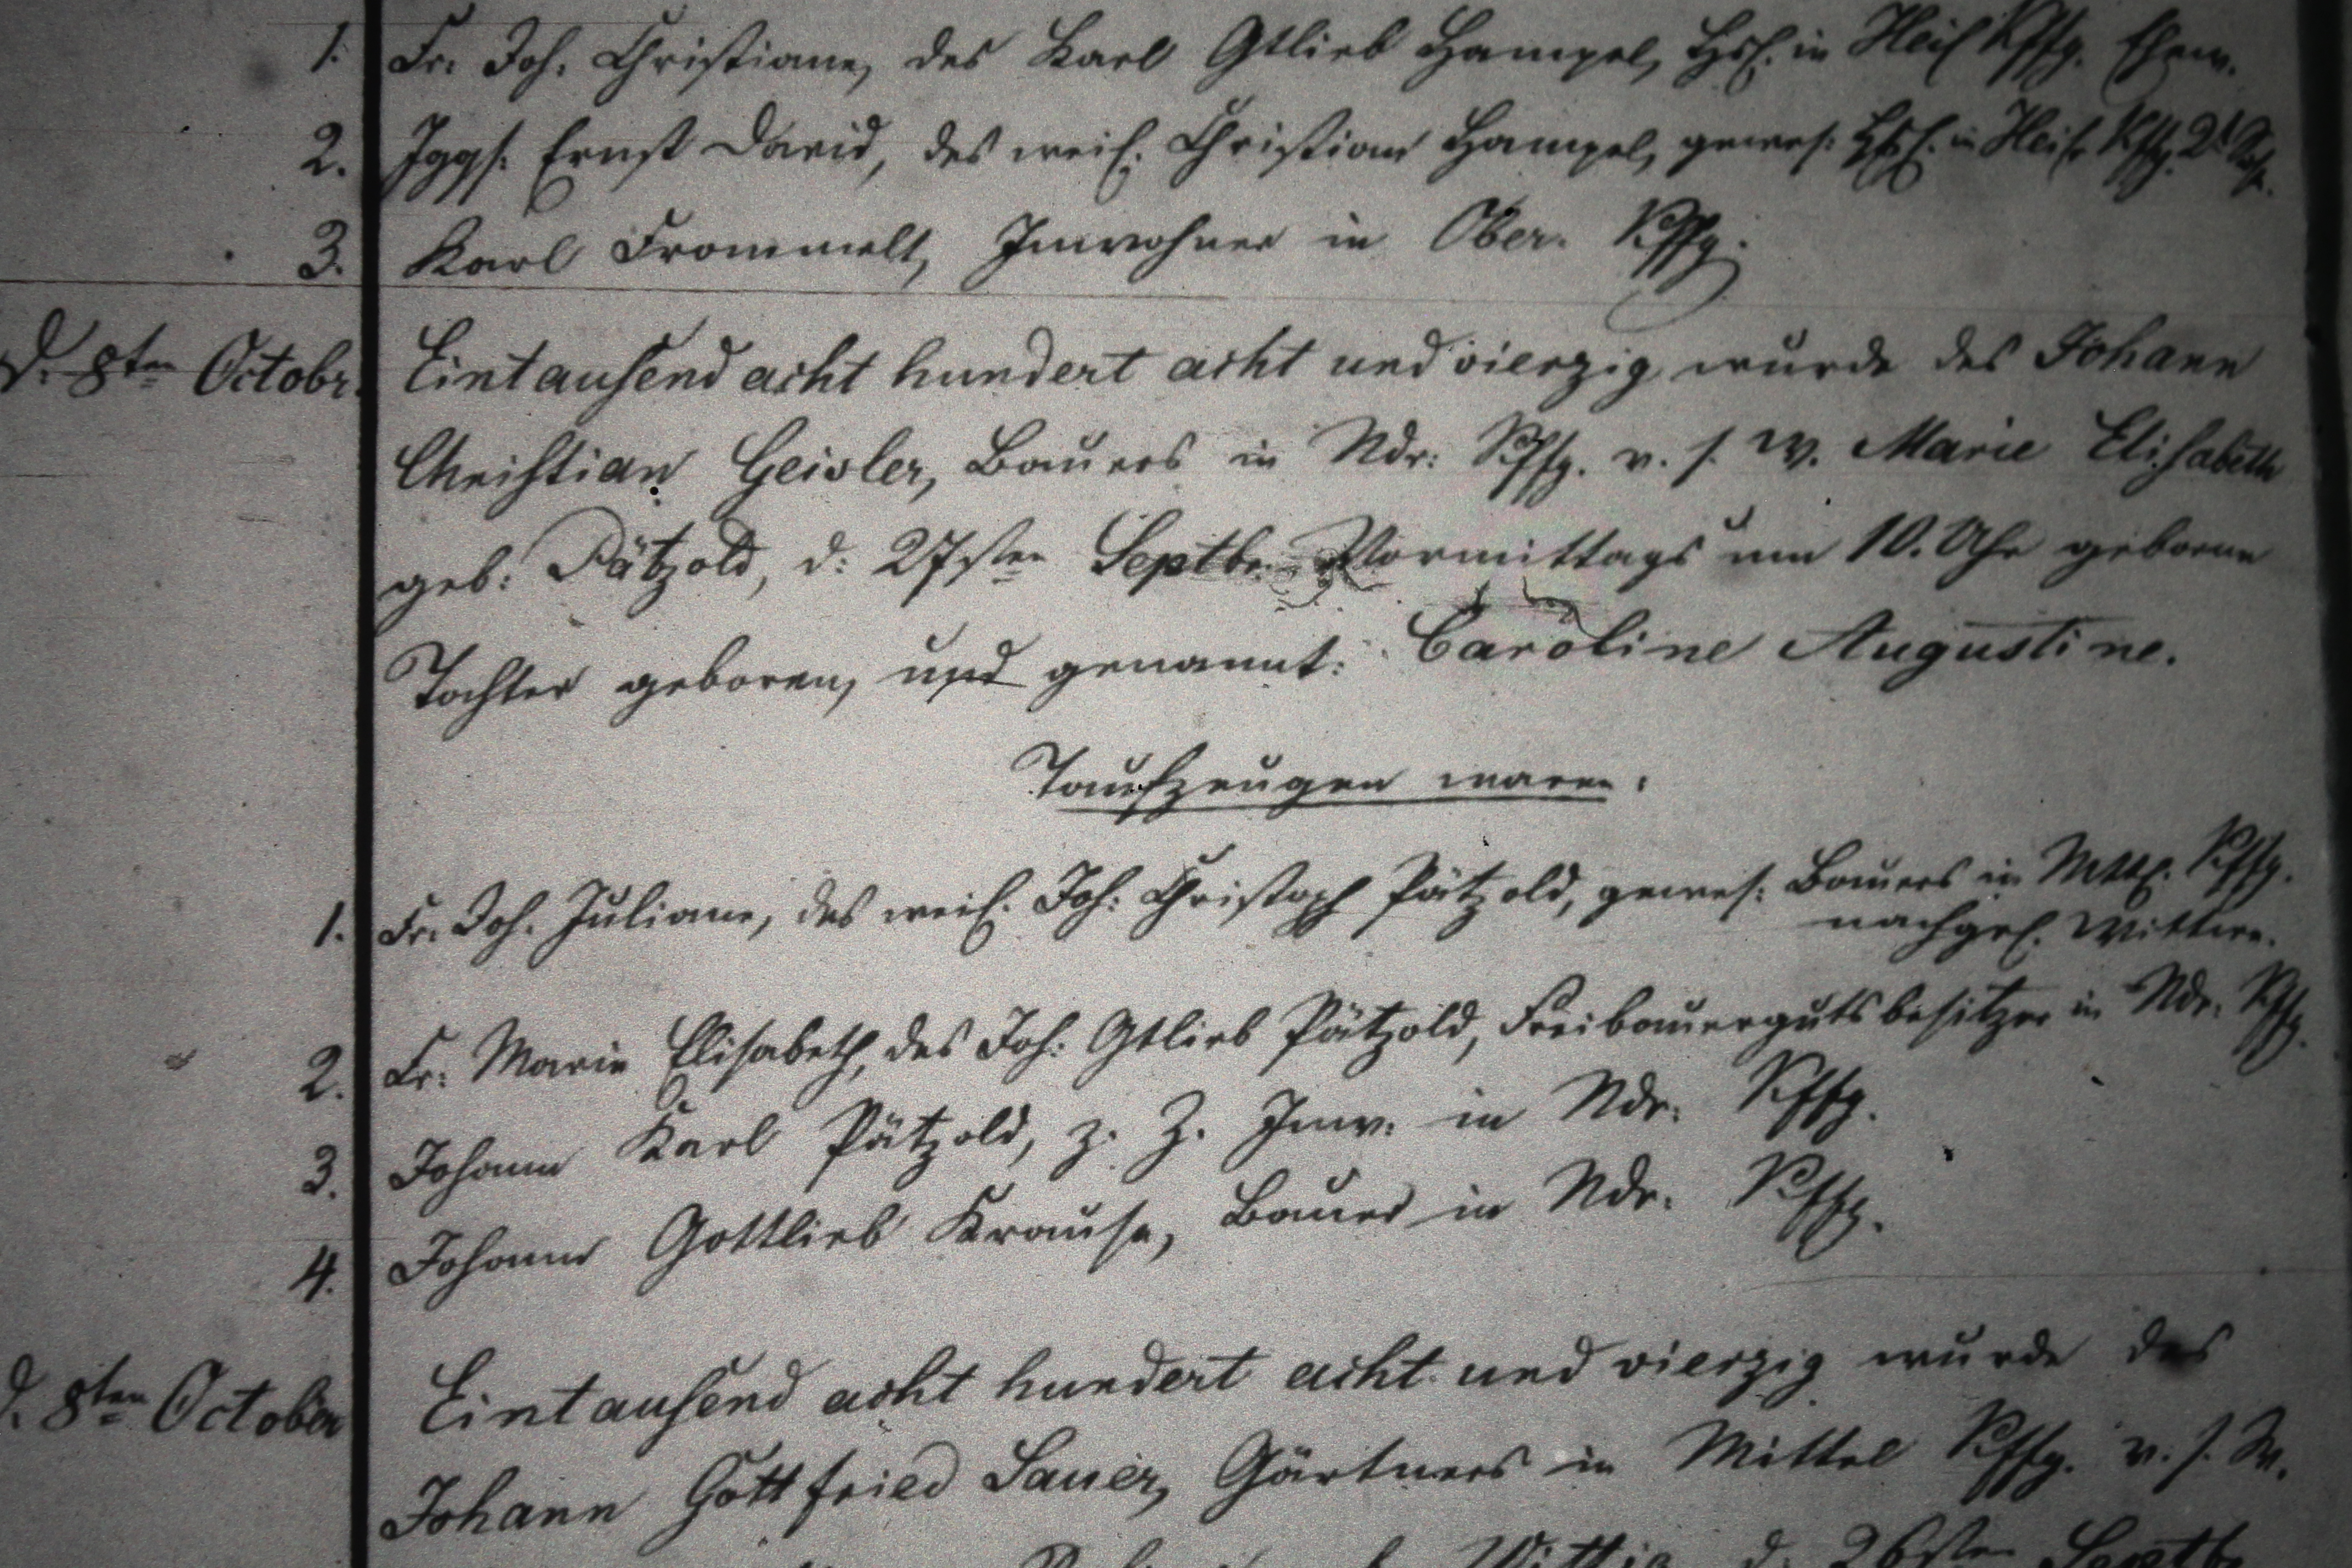 1. Fr. Joh. Christiane, des Karl Gtlieb Hampel, Hsl. in Heil Kffg. Ehew.
2. Jggs. Ernst David, des weil. Christian Hampel, gewes. Hsl. in Heil Kffg. 2t Sohn.
3. Karl Frommelt, Inwohner in Ober. Kffg.
d. 8ten Octobr. Eintausend acht hundert acht und vierzig wurde des Johann
Christian Geisler, Bauers in Ndr: Kffg. v. s. W. Marie Elisabeth
geb: Pätzold, d: 27sten Septbr. Vormittags um 10. Uhr geborne
Tochter geboren, und genannt: Caroline Augustine.
Taufzeugen waren:
1. Fr. Joh. Juliane, des weil. Joh: Christoph Pätzold, gewes: Bauers in Mttl. Kffg.
nachgel. Wittwe.
2. Fr: Marie Elisabeth, des Joh: Gtlieb Pätzold, Freibauergutsbesitzer in Ndr: Kffg.
3. Johann Karl Pätzold, z. Z. Inw. in Ndr: Kffg.
4. Johann Gottlieb Krause, Bauer in Ndr: Kffg.
d. 8ten October Eintausend acht hundert acht und vierzig wurde des
Johann Gottfried Sauer, Gärtners in Mittel Kffg. v. s. W.
Wittig d: 26sten Septbr